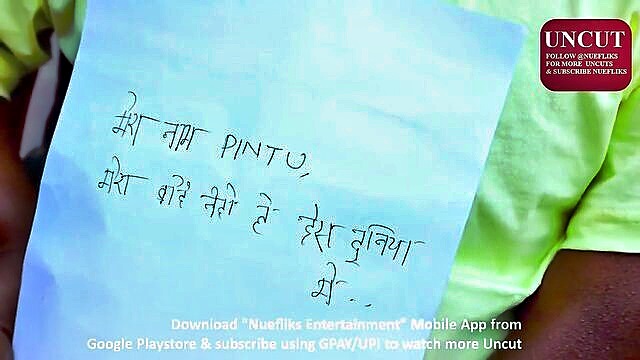 UNCUT
FOLLOW @NUEFLIKS
FOR MORE UNCUTS
& SUBSCRIBE NUEFLIKS
मेरा नाम PINTU,
मेरा कोई नही है इस दुनिया
मे..
Download "Nuefliks Entertainment" Mobile App from
Google Playstore & subscribe using GPAY/UPI to watch more Uncut